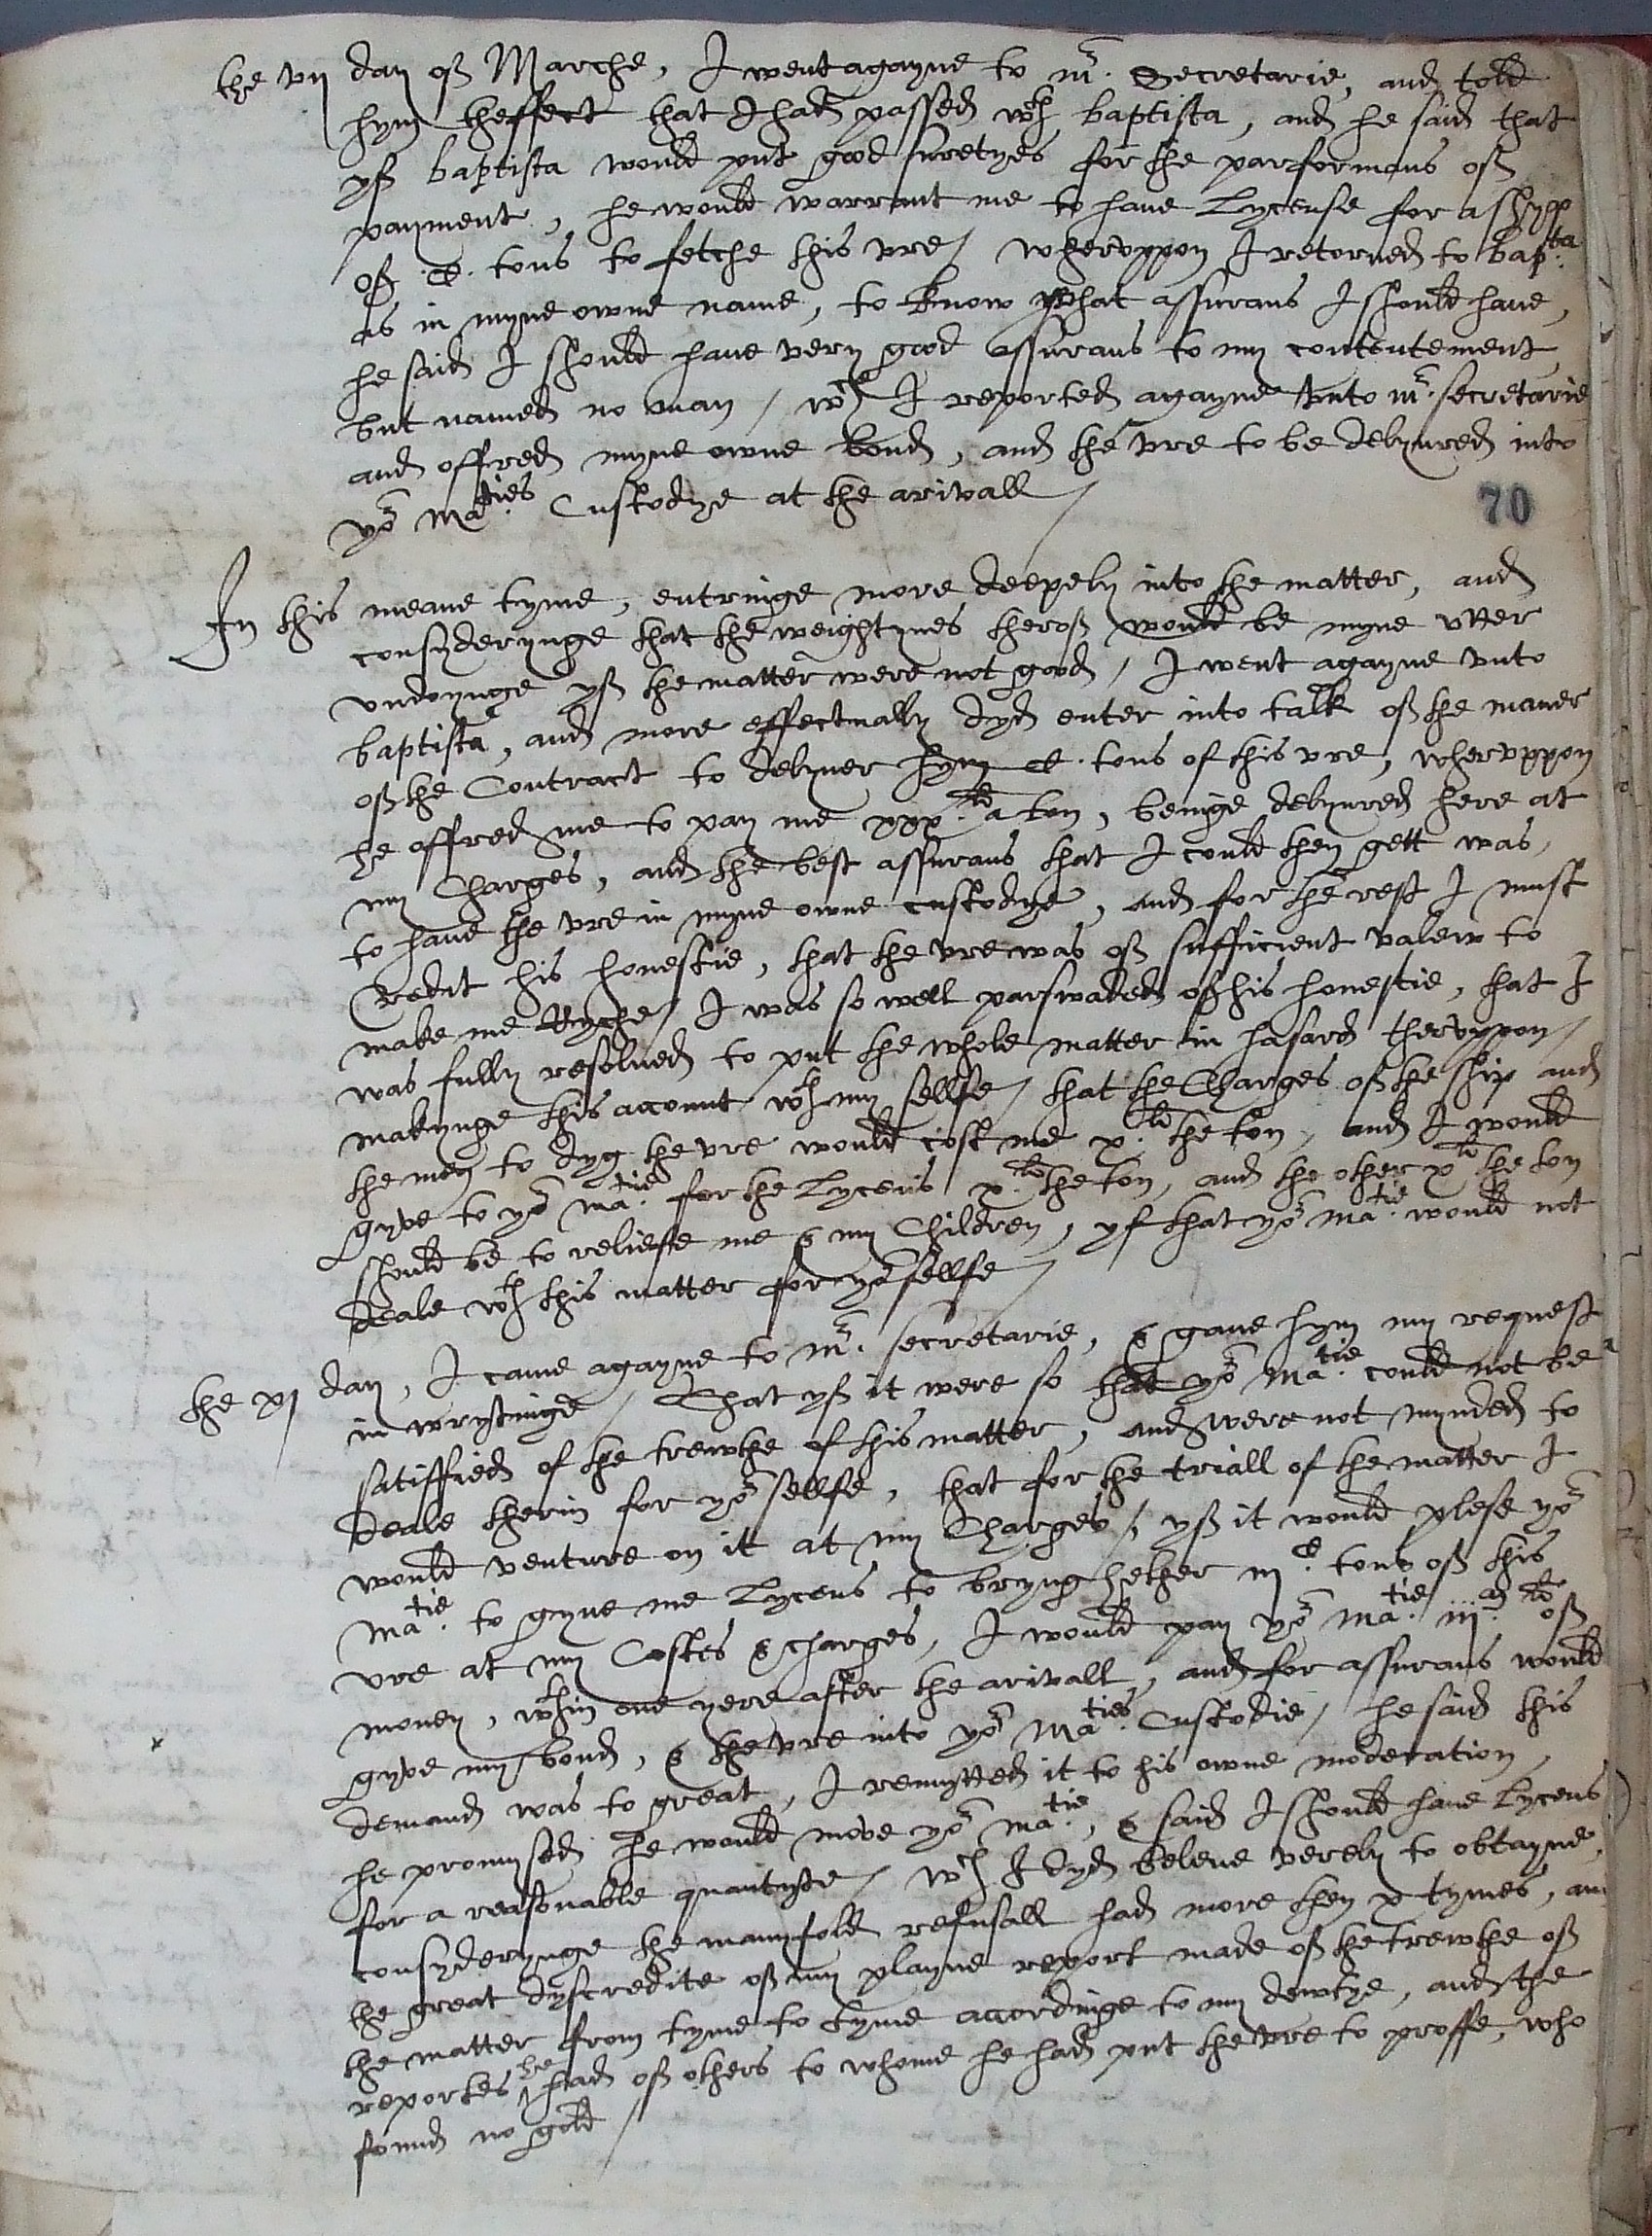 the vij day of Marche, I went agayne to mr. Secretarie, and told
hym theffect that I had passed wth baptista, and he said that
yf baptista would put good suretyes for the parformans of
payment, he would warrant me to have Lycense for a shypp
of .C. tons to fetche this vre / wheruppon I retorned to bapta.
as in myne owne name, to know what assurans I should have,
he said I should have very good assurans to my contentement
but named no man / wch I reported agayne vnto mr. secretarie
and offred myne owne bond, and the vre to be delyuered into
yor maties. Custodye at the arivall /
70
In this meane tyme, entringe more deepely into the matter, and
consyderynge that the weightynes therof would be myne vtter
vndoynge yf the matter were not good / I went agayne vnto
baptista, and more effectually dyd enter into talk of the maner
of the Contract to delyuer hym C. tons of this vre, wheruppon
he offred me to pay me xxx.ld a ton, beinge delyuered here at
my Charges, and the best assurans that I could then gett was,
to have the vre in myne owne custodye, and for the rest I must
Credit his honestie, that the vre was of sufficient valew to
make me Ryche / I was so well parswaded of his honestie, that I
was fully resolued to put the whole matter in hasard theruppon /
makynge this account wth my sellfe / that the Charges of the ship and
the men to dyg the vre would cost me x.ld the ton, and I would
gyve to yor matie. for the Lycens x.ld the ton, and the other x.ld the ton
should be to reliefe me & my Children, yf that yor matie. would not
deale wth this matter for yor sellfe /
the xj day, I came agayne to mr. secretarie, & gave hym my request
in wrytinge / That yf it were so that yor matie. could not be
satisffied of the trewthe of this matter, and were not mynded to
deale therin for yor sellfe, that for the triall of the matter I
would venture on it at my Charges / yf it would plese yor
matie. to gyve me Lycens to bryng hether iij C. tons of this
vre at my Costes & charges, I would pay yor matie. iij.M ld of
money, wthin one yere after the arivall, and for assurans would
gyve my bond, & the vre into yor maties. Custodie / he said this
demand was to great, I remytted it to his owne moderation,
he promysed he would move yor matie., & said I should have Lycens
for a reasonable quantyte / wch I dyd beleve verely to obtayne,
consyderynge the manyfold refusall had more then x tymes, and
the great dyscredite of my playne report made of the trewthe of
the matter from tyme to tyme accordinge to my dewtye, and the
reportes he had of others to whome he had put the vre to proffe, who
found no gold /